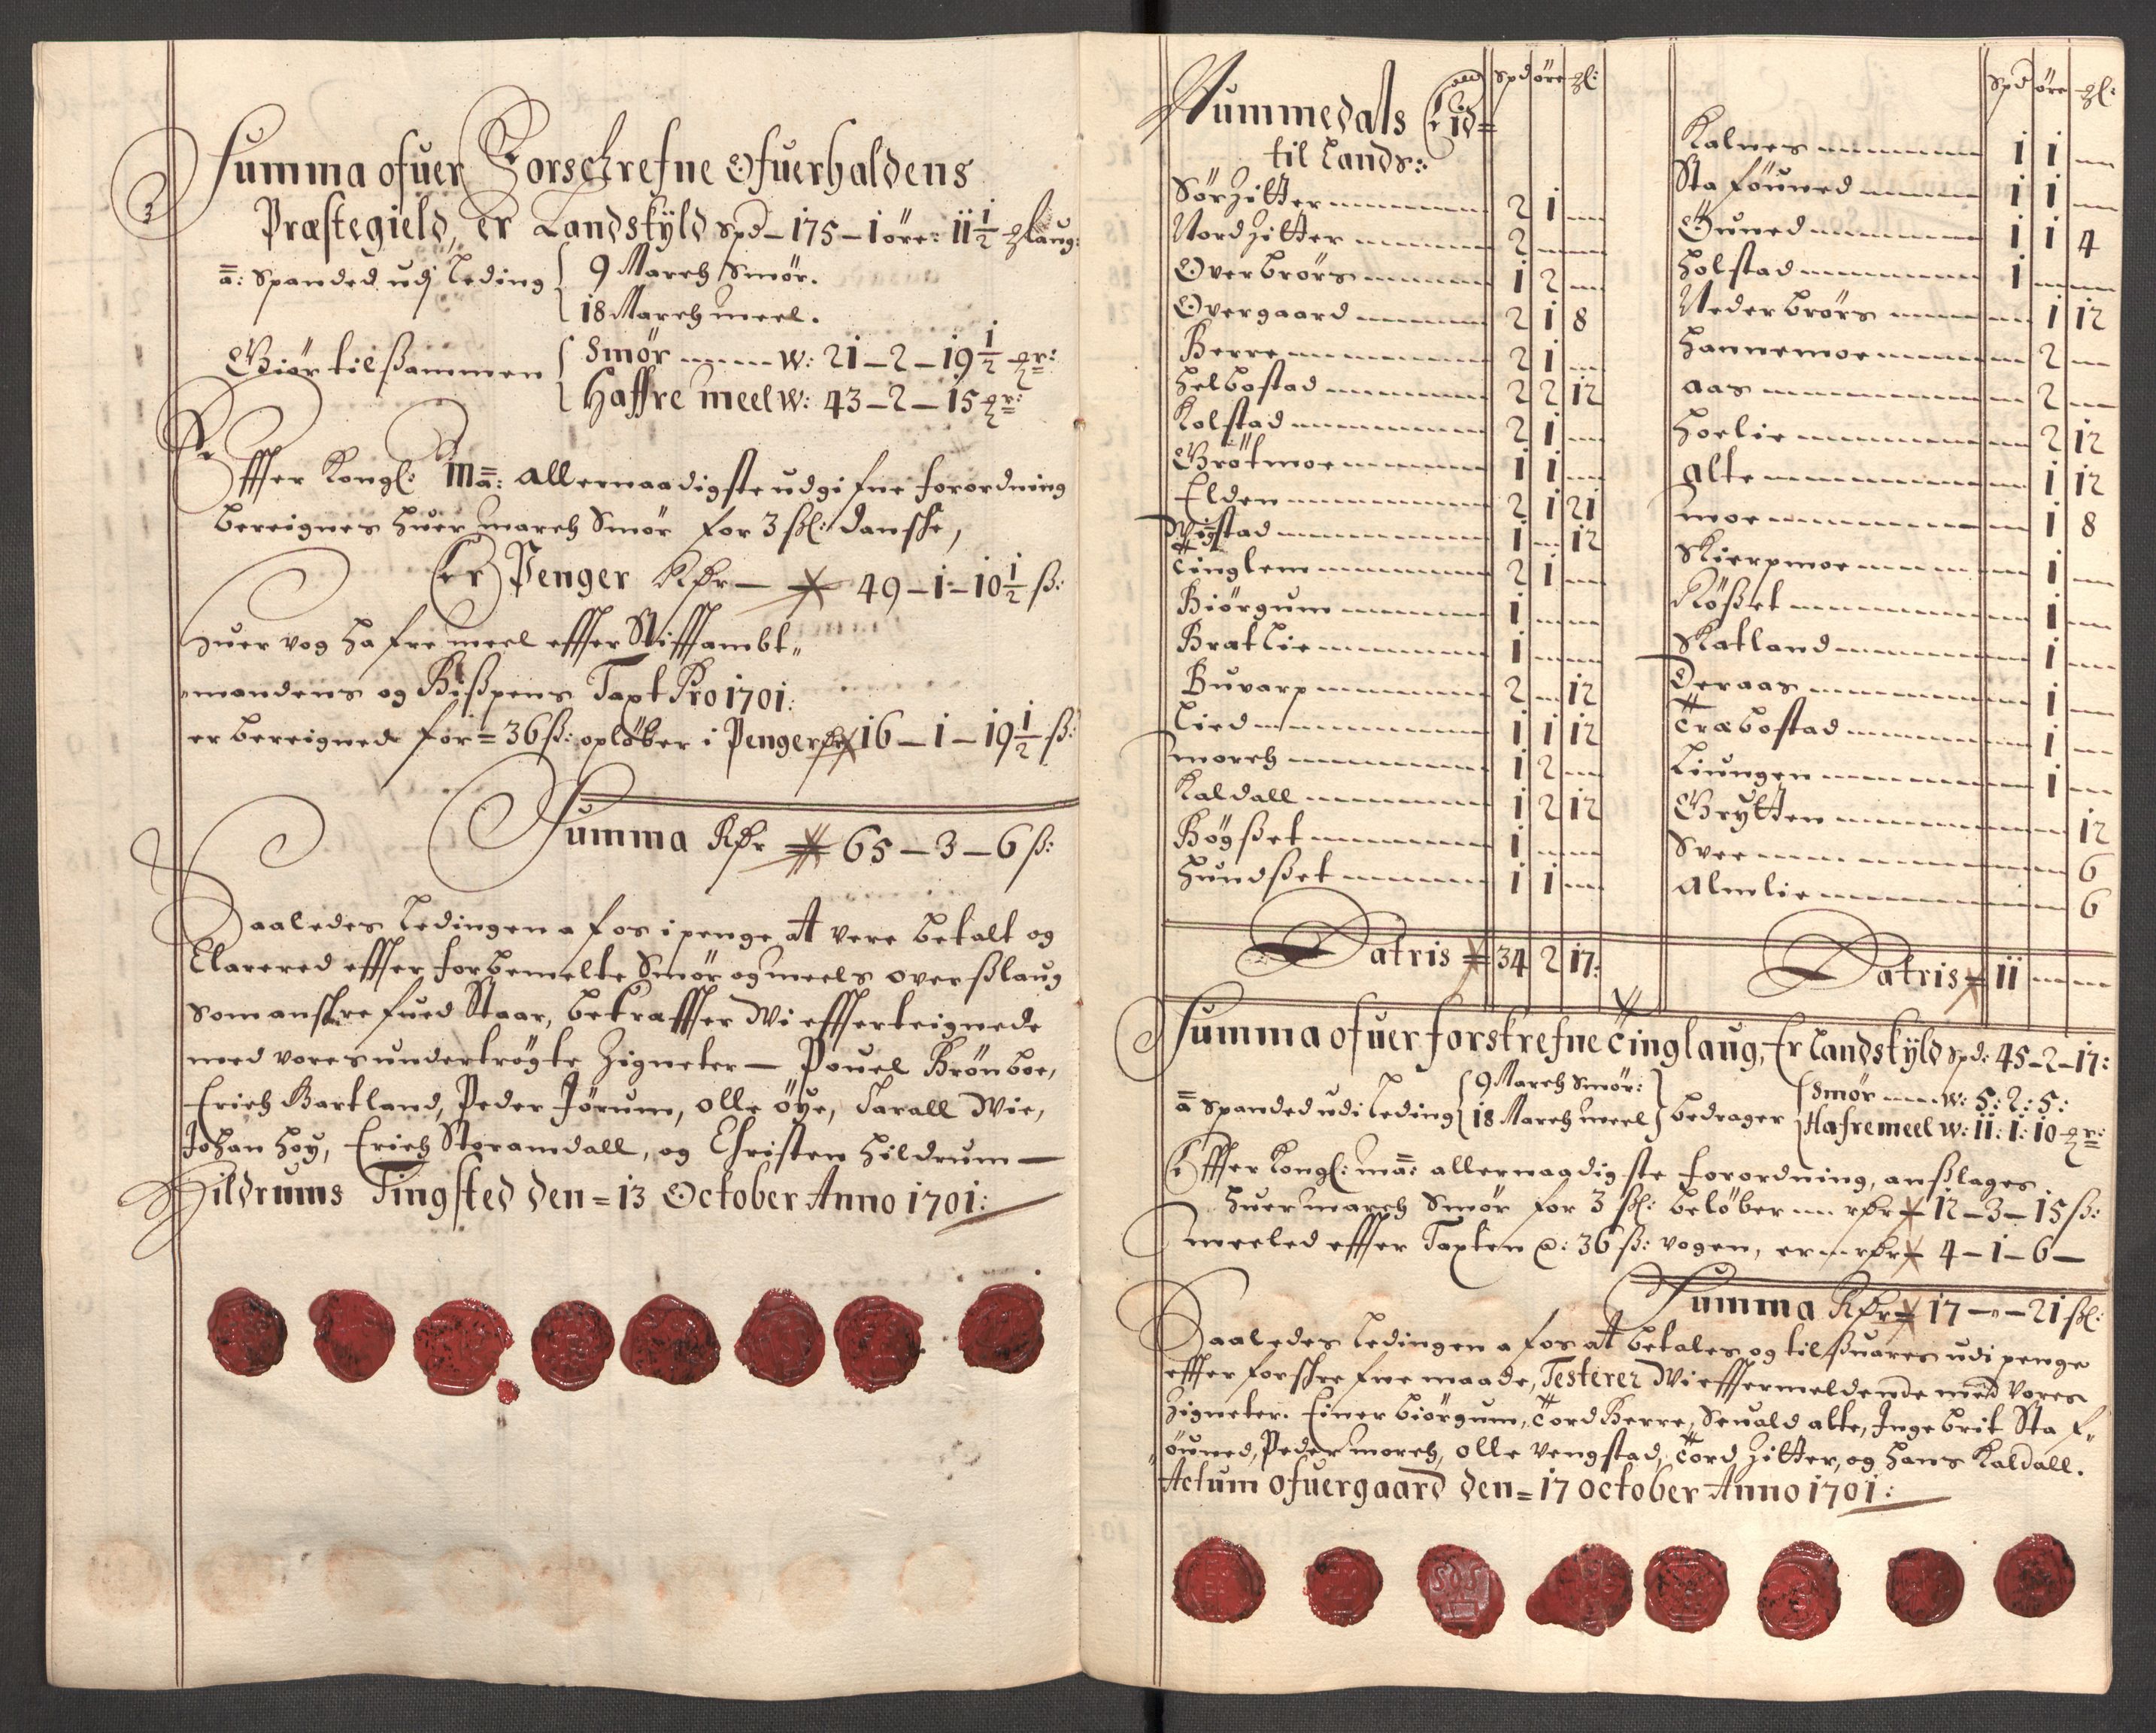 Summa ofuer Forschrefne Ofuerhaldens
Præstegield, er Landskÿld Spd – 175 – 1 öre: 11½ Mlaug:
ā: Spanded udj Leding { 9 March Smør.
18 March meel.
Giör tilsammen { Smør ---- W: 21 – 2 – 19½ Mr:
Haffre meel W: 43 – 2 – 15 Mr:
Effter Kongl: Mā: allernaadigste udgifne forordning
bereignes huer march Smør for 3 ßl: danske,
Er Penger Rdr — 49 – 1 – 10½ ß:
Huer vog hafre meel effter Stifftambt„
mandens og Bißpens Taxt Pro 1701:
er bereigned for = 36 ß: opløber i Penger Rdr 16 – 1 – 19½ ß:
Summa Rdr 65 – 3 – 6 ß:
Saaledes Ledingen afos i penge at vere betalt og
Clarered effter forbemelte Smør og meels overßlaug
som anskrefued Staar, bekræffter Wi effterteignede
med vores undertrögte Zigneter — Pouel Brönboe,
Erich Bartland, Peder Jørum, Olle öÿe, Tarall Wie,
Johan Hoÿ, Erich Storamdall, og Christen Hildrum —
Hildrums Tingsted den = 13 October Anno 1701:
Nummedals Eid=
til Lands:
Spd öre Ml:
Sörzitter 2 1 –
Nordzitter 2 – –
Overbrörs 1 2 –
Overgaard 2 1 8
Berre 2 1 –
Helbostad 2 2 12
Kolstad 2 1 –
Grötmoe 1 1 –
Elden 2 1 21
Wingstad 1 – 12
Tinglem 2 1 –
Biörgum 1 – –
Bratlie 1 – –
Buvarp 2 – 12
Lied 1 1 12
morch 1 2 –
Kaldall 1 2 12
Högßet 1 – –
Hundßet 1 1 –
Latris 34 2 17:
Spd öre Ml:
Kalnes 1 1 –
Sta föuned 1 1 –
Öuned 1 1 4
Holstad 1 – –
Nederbrörs – 1 12
Hannemoe – 2 –
aas – 2 –
Hoelie – 2 12
Alte – 1 12
moe – 1 8
Skierpmoe – 1 –
Rößet – 1 –
Skatland – 1 –
Deraas – 1 –
Træbostad – 1 –
Liungen – 1 –
Grÿtten – – 12
Svee – – 6
Almlie – – 6
Latris 11 – –
Summa ofuer forskrefne Tinglaug, Er Landskÿld Spd: 45 – 2 – 17:
ā Spanded udi Leding { 9 March Smør: 18 March meel } bedrager { Smør ---- W: 5: 2: 5:
Hafremeel W: 11: 1: 10 Mr:
Effter Kongl: mā: allernaadigste forordning, anßlages
huer march Smør for 3 ßl: beløber --- rdr 12 – 3 – 15 ß:
meeled effter Taxten a: 36 ß: vogen, er --- rdr 4 – 1 – 6 —
Summa Rdr 17 – „ – 21 ßl:
Saaledes Ledingen afos at betales og tilßuares udi penge
effter forskrefne maade, Testerer Wi effermeldende med vores
Zigneter. Einer biörgum, Tord Berre, Seuald alte, Ingebrit Sta f„
„öuned, Peder morch, Olle Vengstad, Tord Zitter, og Hans Kaldall.
Actum Ofuergaard den = 17 October Anno 1701: